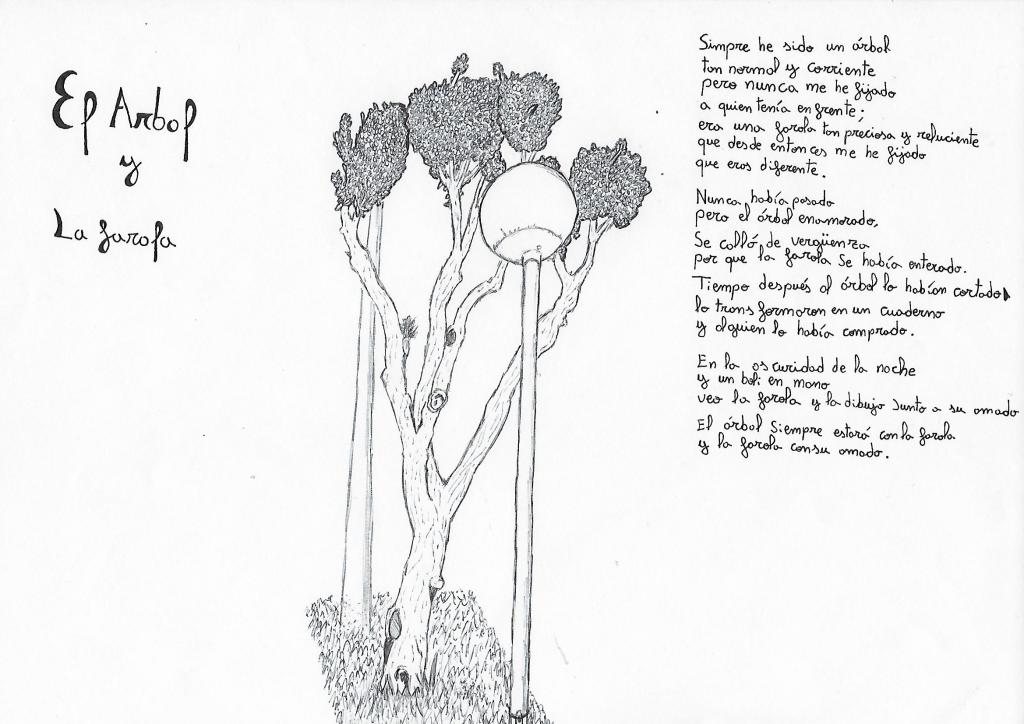 El Arbol
y
La farola
Simpre he sido un árbol
tan normal y corriente
pero nunca me he fijado
a quien tenía enfrente;
era una farola tan preciosa y reluciente
que desde entonces me he fijado
que eras diferente.
Nunca había pasado
pero el árbol enamorado,
Se calló de vergüenza
por que la farola Se había enterado.
Tiempo después al árbol lo habían cortado
lo trans formaron en un cuaderno
y alguien lo había comprado.
En la oscuridad de la noche
y un boli en mano
veo la farola y la dibujo Junto a su amado
El árbol Siempre estará con la farola
y la farola con su amado.